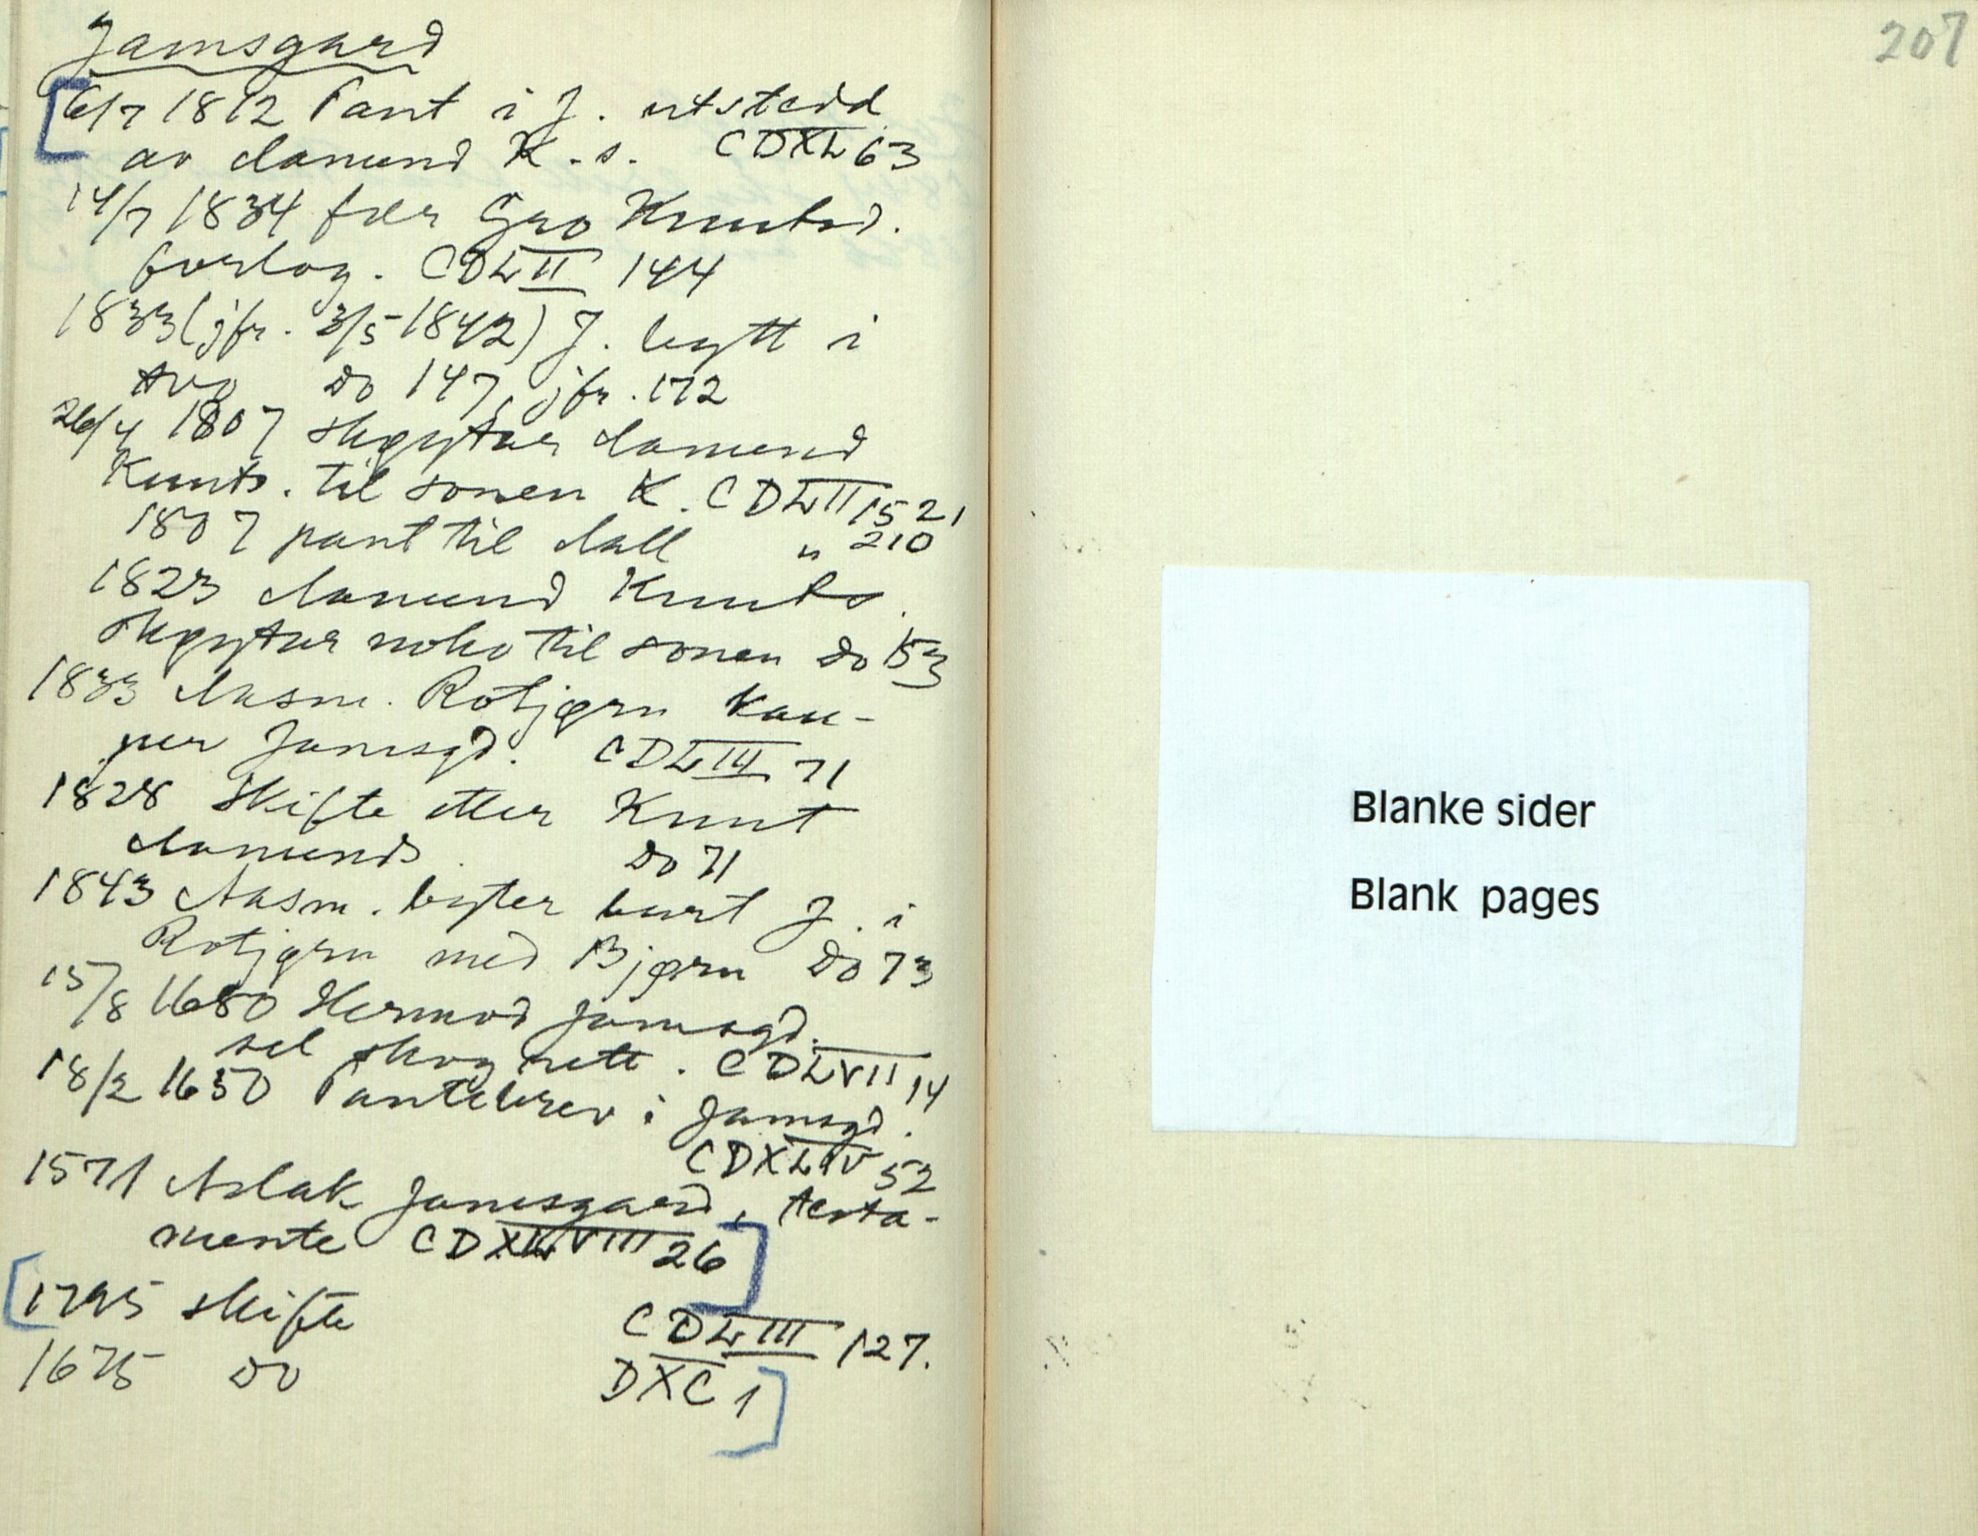 Jamsgard
6/7 1812 Pant i J. utstedd
av Aamund K.s. CDXL 63
14/7 1834 fær Gro Knutsd.
forlag. CDLII 144
1833 (jfr. 3/5 1842) J. bytt i
two Do 147, jfr. 172
26/4 1807 skøytar Aamund
Knuts. til sonen K. CDLII 152
1807 pant til Aall " 210
1823 Aamund Knuts.
skøytar noko til sonen Do 153
1833 Aasm. Rotjørn kau-
per Jamsgd. CDLIII 71
1828 Skifte etter Knut
Aamunds. Do 71
1843 Aasm. byter burt J. i
Rotjørn med Bjørn Do 73
15/8 1680 Hermod Jamsgd.
sel skogrett. CDLVII 14
18/2 1650 Pantebrev i Jamsgd.
CDXLIV 52
1571 Aslak Jamsgaard, testa-
mente CDXLVIII 26
1795 skifte CDLIII 127.
1675 Do DXC 1
207
Blanke sider
Blank pages